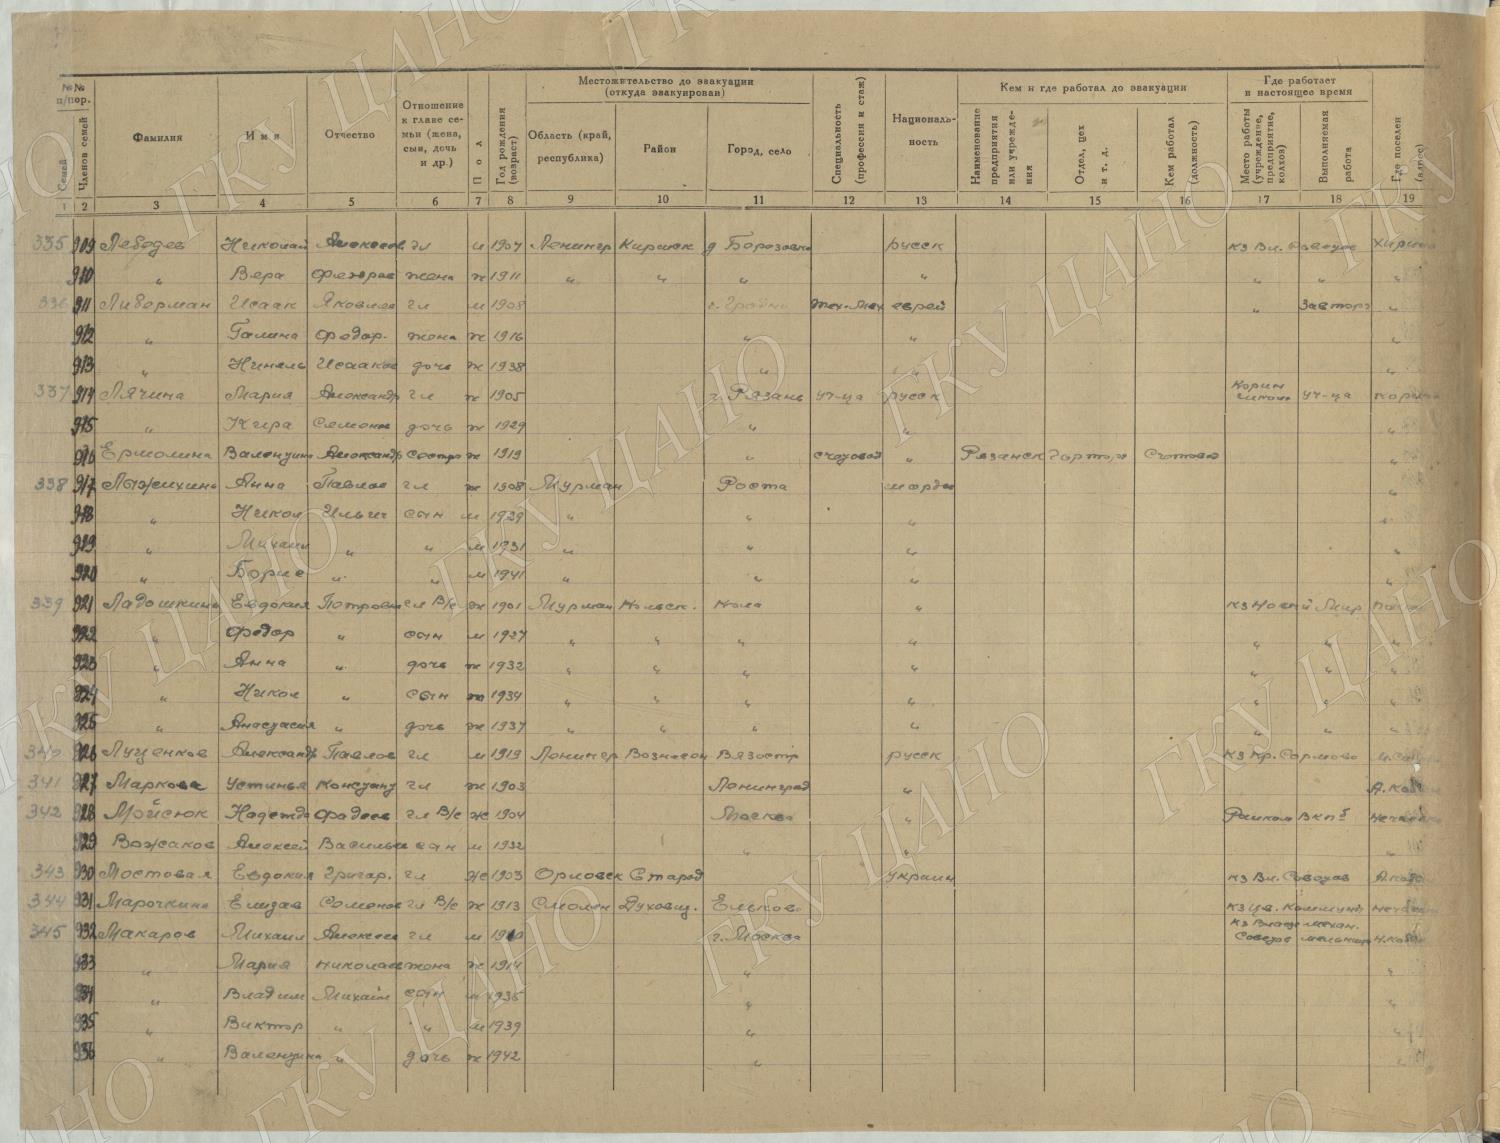 №№ п/пор. Местожительство до эвакуации (откуда эвакуирован) Кем и где работал до эвакуации Где работает в настоящее время
Семей Членов семей Фамилия Имя Отчество Отношение к главе семьи (жена, сын, дочь и др.) Пол Год рождения (возраст) Область (край, республика) Район Город, село Специальность (профессия и стаж) Национальность Наименование предприятия или учреждения Отдел, цех и т. д. Кем работал (должность) Место работы (учреждение, предприятие, колхоз) Выполняемая работа Где поселен (адрес)
1 2 3 4 5 6 7 8 9 10 11 12 13 14 15 16 17 18 19
335 909 Лебедев Николай Алексеев гл м 1907 Ленингр Киришск д Березовка русск кз Вл.
910 " Вера Федоров жена ж 1911 " " " " " " "
336 911 Либерман Исаак Яковлев гл м 1908 Тех-Мех еврей " "
912 " Галина Федор. жена ж 1916 " " "
913 " Нинель Исааков дочь ж 1938 " " "
337 914 Лячина Мария Александр гл ж 1905 г. Рязань уч-ца русск уч-ца
915 " Кира Семенов дочь ж 1929 " " "
916 Ермолина Валентина Александр сестра ж 1919 " счетовод " Рязанск Горторг Счетовод "
338 917 Лыжихина Анна Павлов гл ж 1908 Мурман Роста мордв "
918 " Никол Ильич сын м 1929 " " " "
919 " Михаил " " м 1931 " " " "
920 " Борис " " м 1941 " " " "
339 921 Ладошкина Евдокия Петровн гл В/с ж 1901 Мурман Кольск. Кола " кз Новый Мир
922 " Федор " сын м 1927 " " " " " " "
923 " Анна " дочь ж 1932 " " " " " " "
924 " Никол " сын ж 1934 " " " " " " "
925 " Анастасия " дочь ж 1937 " " " " " " "
340 926 Луценков Александр Павлов гл м 1919 Ленингр Вознесен Вязостр русск кз Кр. Сормово
341 927 Маркова Устинья Констант гл ж 1903 Ленинград "
342 928 Мойсюк Надежда Фадеев гл В/с ж 1904 Москва " Райком ВКПб
929 Вожаков Алексей Васильев сын м 1932 " " "
343 930 Мостовая Евдокия Григор. гл ж 1903 Орловск Старод Украин кз Вл.
344 931 Марочкина Елизав Семенов гл В/с ж 1913 Смолен Духовщ. кз Кр. Коммуна
345 932 Макаров Михаил Алексеев гл м 1910 г. Москва кз механ.
933 " Мария Николаев жена ж 1914 " "
934 " Владим Михайл сын м 1935 " "
935 " Виктор " " м 1939 " "
936 " Валентина " дочь ж 1942 " "
ГКУ ЦАНО